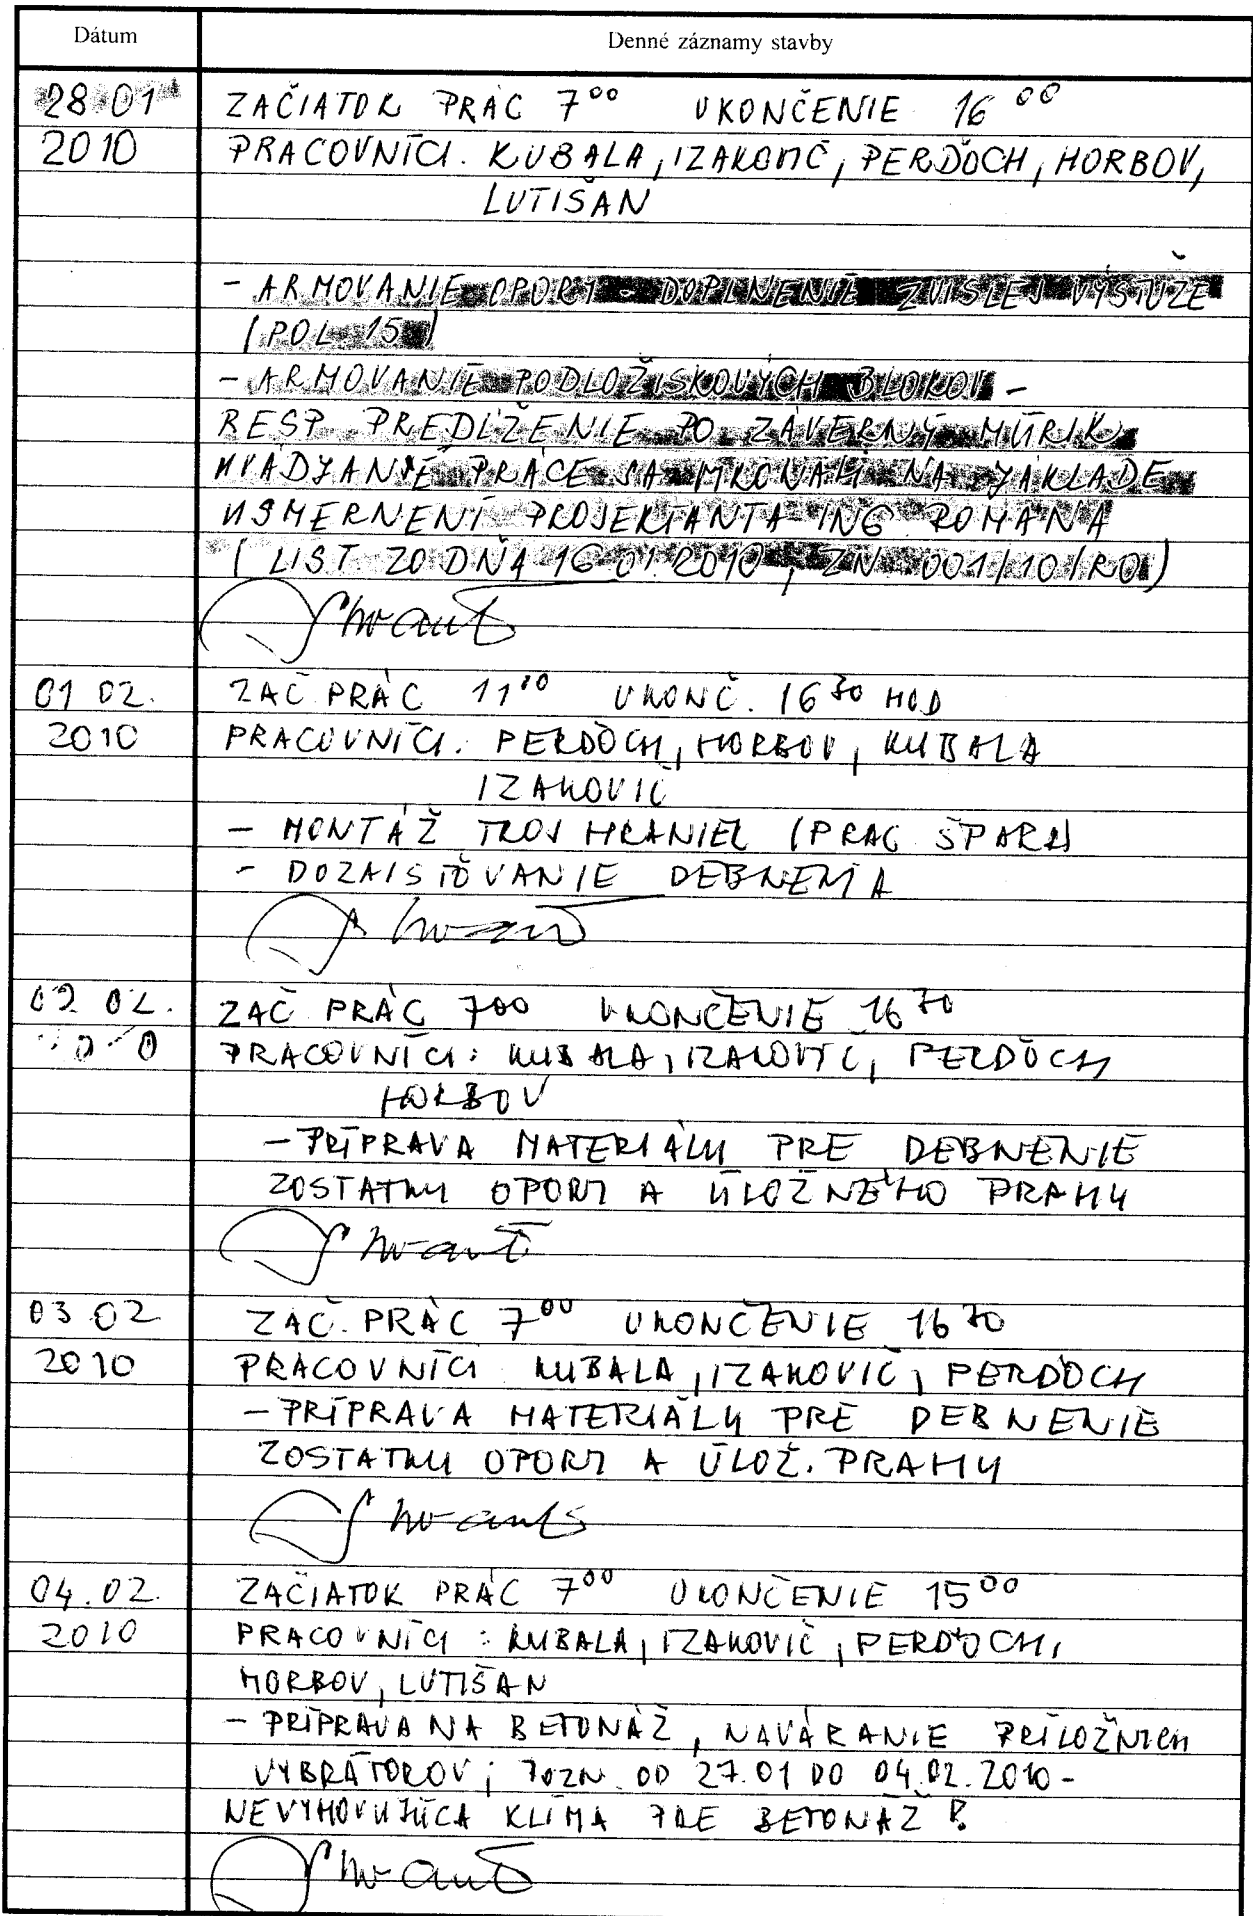 Dátum Denné záznamy stavby
28.01 ZAČIATOK PRÁC 7⁰⁰ UKONČENIE 16⁰⁰
2010 PRACOVNÍCI. KUBALA, IZAKOVIČ, PERĎOCH, HORBOV,
LUTIŠAN
- ARMOVANIE OPORY - DOPLNENIE ZVISLEJ VÝSTUŽE
(POL 15)
- ARMOVANIE PODLOŽISKOVÝCH BLOKOV -
RESP PREDLŽENIE PO ZÁVERNÝ MÚRIK
UVÁDZANÉ PRÁCE SA VYKONALI NA ZÁKLADE
USMERNENÍ PROJEKTANTA ING ROMANA
(LIST ZO DŇA 16 01 2010, ZN 001/10/RO)
01 02. ZAČ PRÁC 11³⁰ UKONČ. 16³⁰ HOD
2010 PRACOVNÍCI. PERĎOCH, HORBOV, KUBALA
IZAKOVIČ
- MONTÁŽ TROJHRANIEL (PRAC ŠPARY)
- DOZAISŤOVANIE DEBNENIA
02 02. ZAČ PRÁC 7⁰⁰ UKONČENIE 16³⁰
PRACOVNÍCI: KUBALA, IZAKOVIČ, PERĎOCH
HORBOV
- PRÍPRAVA MATERIÁLU PRE DEBNENIE
ZOSTATKU OPORY A ÚLOŽNÉHO PRAHU
03 02 ZAČ. PRÁC 7⁰⁰ UKONČENIE 16³⁰
2010 PRACOVNÍCI KUBALA, IZAKOVIČ, PERĎOCH
- PRÍPRAVA MATERIÁLU PRE DEBNENIE
ZOSTATKU OPORY A ÚLOŽ. PRAHU
04.02. ZAČIATOK PRÁC 7⁰⁰ UKONČENIE 15⁰⁰
2010 PRACOVNÍCI : KUBALA, IZAKOVIČ, PERĎOCH,
HORBOV, LUTIŠAN
- PRÍPRAVA NA BETONÁŽ, NAVÁRANIE PRÍLOŽNÝCH
VYBRÁTOROV; POZN. OD 27.01 DO 04.02.2010 -
NEVYHOVUJÚCA KLÍMA PRE BETONÁŽ !